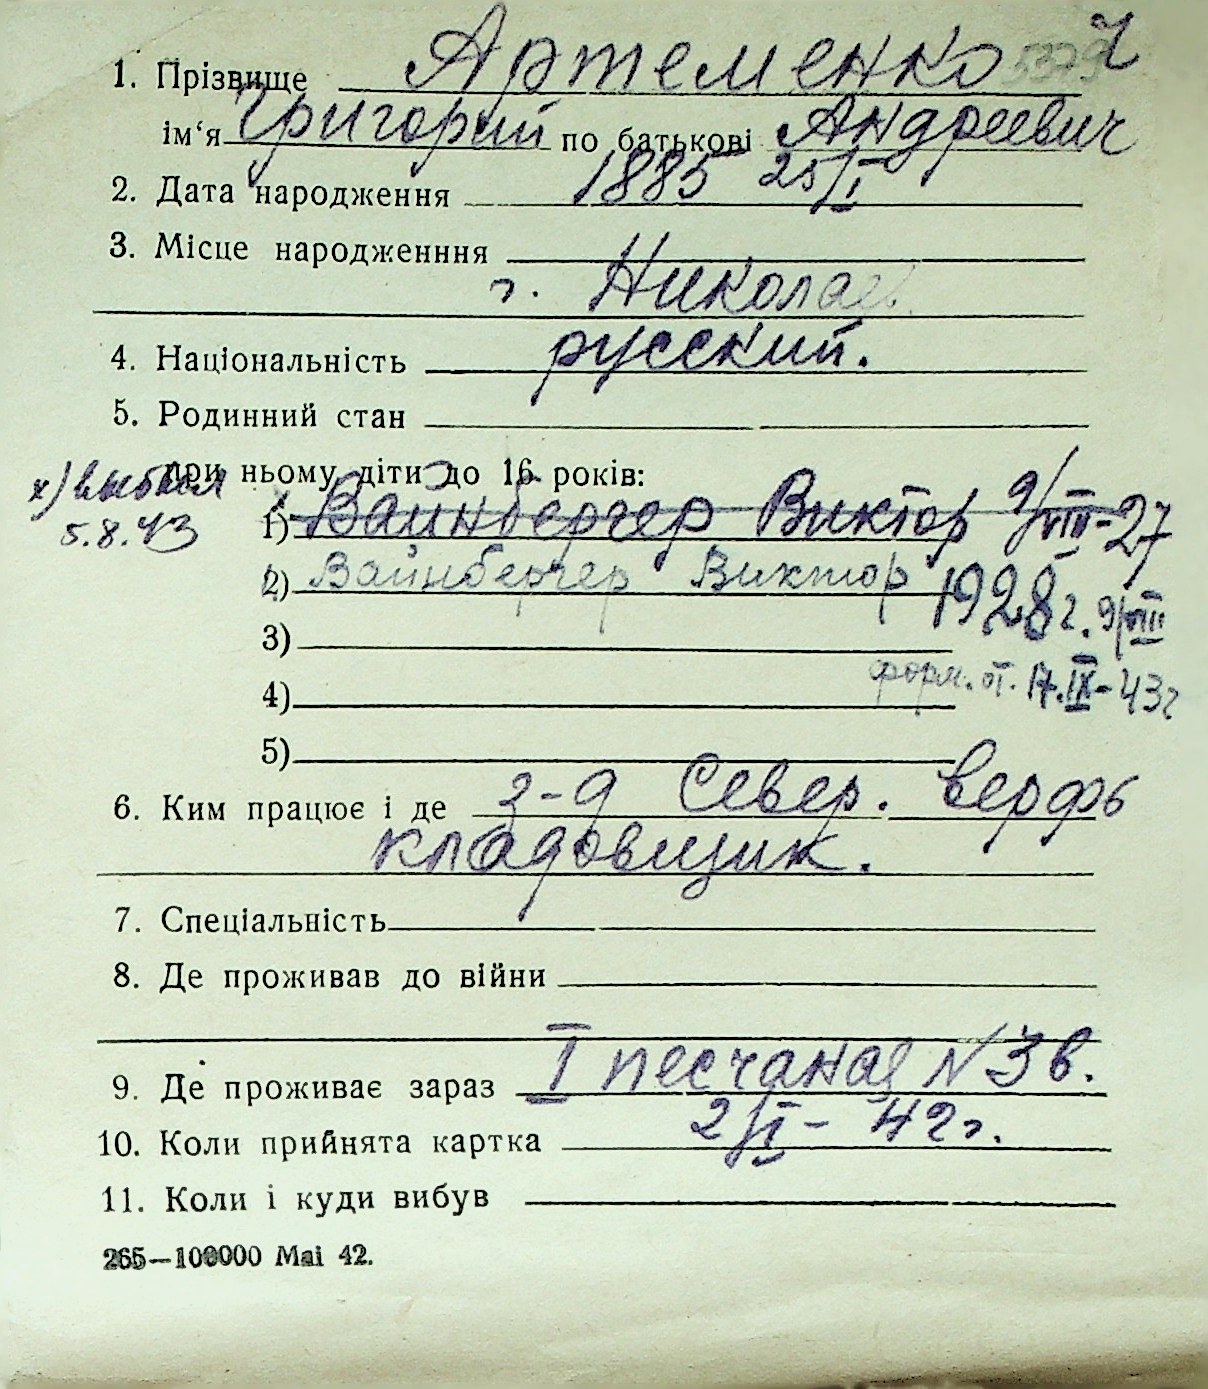 1. Прізвище Артеменко
ім‘я Григорий по батькові Андреевич
2. Дата народження 1885 25/I
3. Місце народженння
г. Николаев
4. Національність русский.
5. Родинний стан
при ньому діти до 16 років:
х) выбыл
5.8.43
1) Вайнбергер Виктор 9/VIII-27
2) Вайнбергер Виктор 1928 г. 9/VIII
3)
форм. от. 17.IX-43г
4)
5)
6. Ким працює і де з-д Север. верфь
кладовщик.
7. Спеціальність
8. Де проживав до війни
9. Де проживає зараз I песчаная N 3 в.
10. Коли прийнята картка 2/VI-42г.
11. Коли і куди вибув
265—100000 Mai 42.